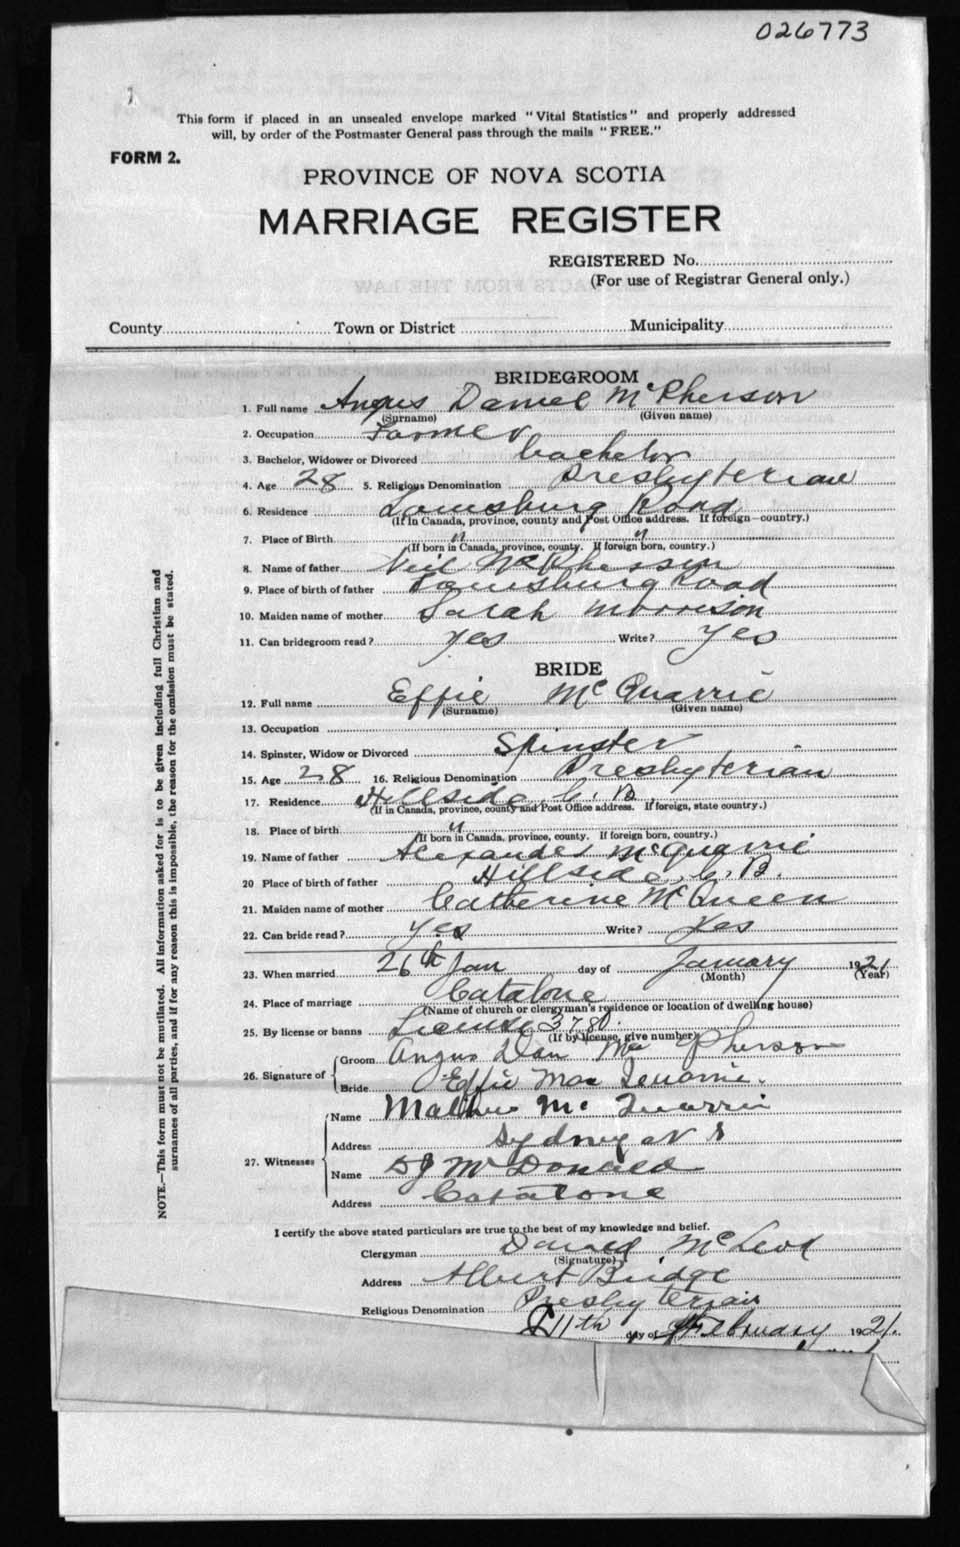 026773
This form if placed in an unsealed envelope marked "Vital Statistics" and properly addressed
will, by order of the Postmaster General pass through the mails "FREE."
FORM 2.
PROVINCE OF NOVA SCOTIA
MARRIAGE REGISTER
REGISTERED No.
(For use of Registrar General only.)
County Town or District Municipality
BRIDEGROOM
1. Full name Angus Daniel McPherson
(Surname) (Given name)
2. Occupation Farmer
3. Bachelor, Widower or Divorced bachelor
4. Age 28 5. Religious Denomination Presbyterian
6. Residence Louisburg Road
(If in Canada, province, county and Post Office address. If foreign country.)
7. Place of Birth " "
(If born in Canada, province, county. If foreign born, country.)
8. Name of father Neil McPherson
9. Place of birth of father Louisburg Road
10. Maiden name of mother Sarah Morrison
11. Can bridegroom read? yes Write? Yes
BRIDE
12. Full name Effie McQuarrie
(Surname) (Given name)
13. Occupation
14. Spinster, Widow or Divorced Spinster
15. Age 28 16. Religious Denomination Presbyterian
17. Residence Hillside, C. B.
(If in Canada, province, county and Post Office address. If foreign, state country.)
18. Place of birth "
(If born in Canada, province, county. If foreign born, country.)
19. Name of father Alexander McQuarrie
20 Place of birth of father Hillside, C. B.
21. Maiden name of mother Catherine McQueen
22. Can bride read? yes Write? Yes
23. When married 26th Jan day of January 1921
(Month) (Year)
24. Place of marriage Catalone
(Name of church or clergyman's residence or location of dwelling house)
25. By license or banns License 3780.
(If by license, give number)
26. Signature of Groom Angus Dan Mac Pherson
Bride Effie Mac Quarrie.
27. Witnesses Name McQuarrie
Address Sydney N S
Name DJ McDonald
Address Catalone
I certify the above stated particulars are true to the best of my knowledge and belief.
Clergyman McLeod
(Signature)
Address Albert Bridge
Religious Denomination Presbyterian
11th day of February 1921.
NOTE.—This form must not be mutilated. All information asked for is to be given including full Christian and
surnames of all parties, and if for any reason this is impossible, the reason for the omission must be stated.